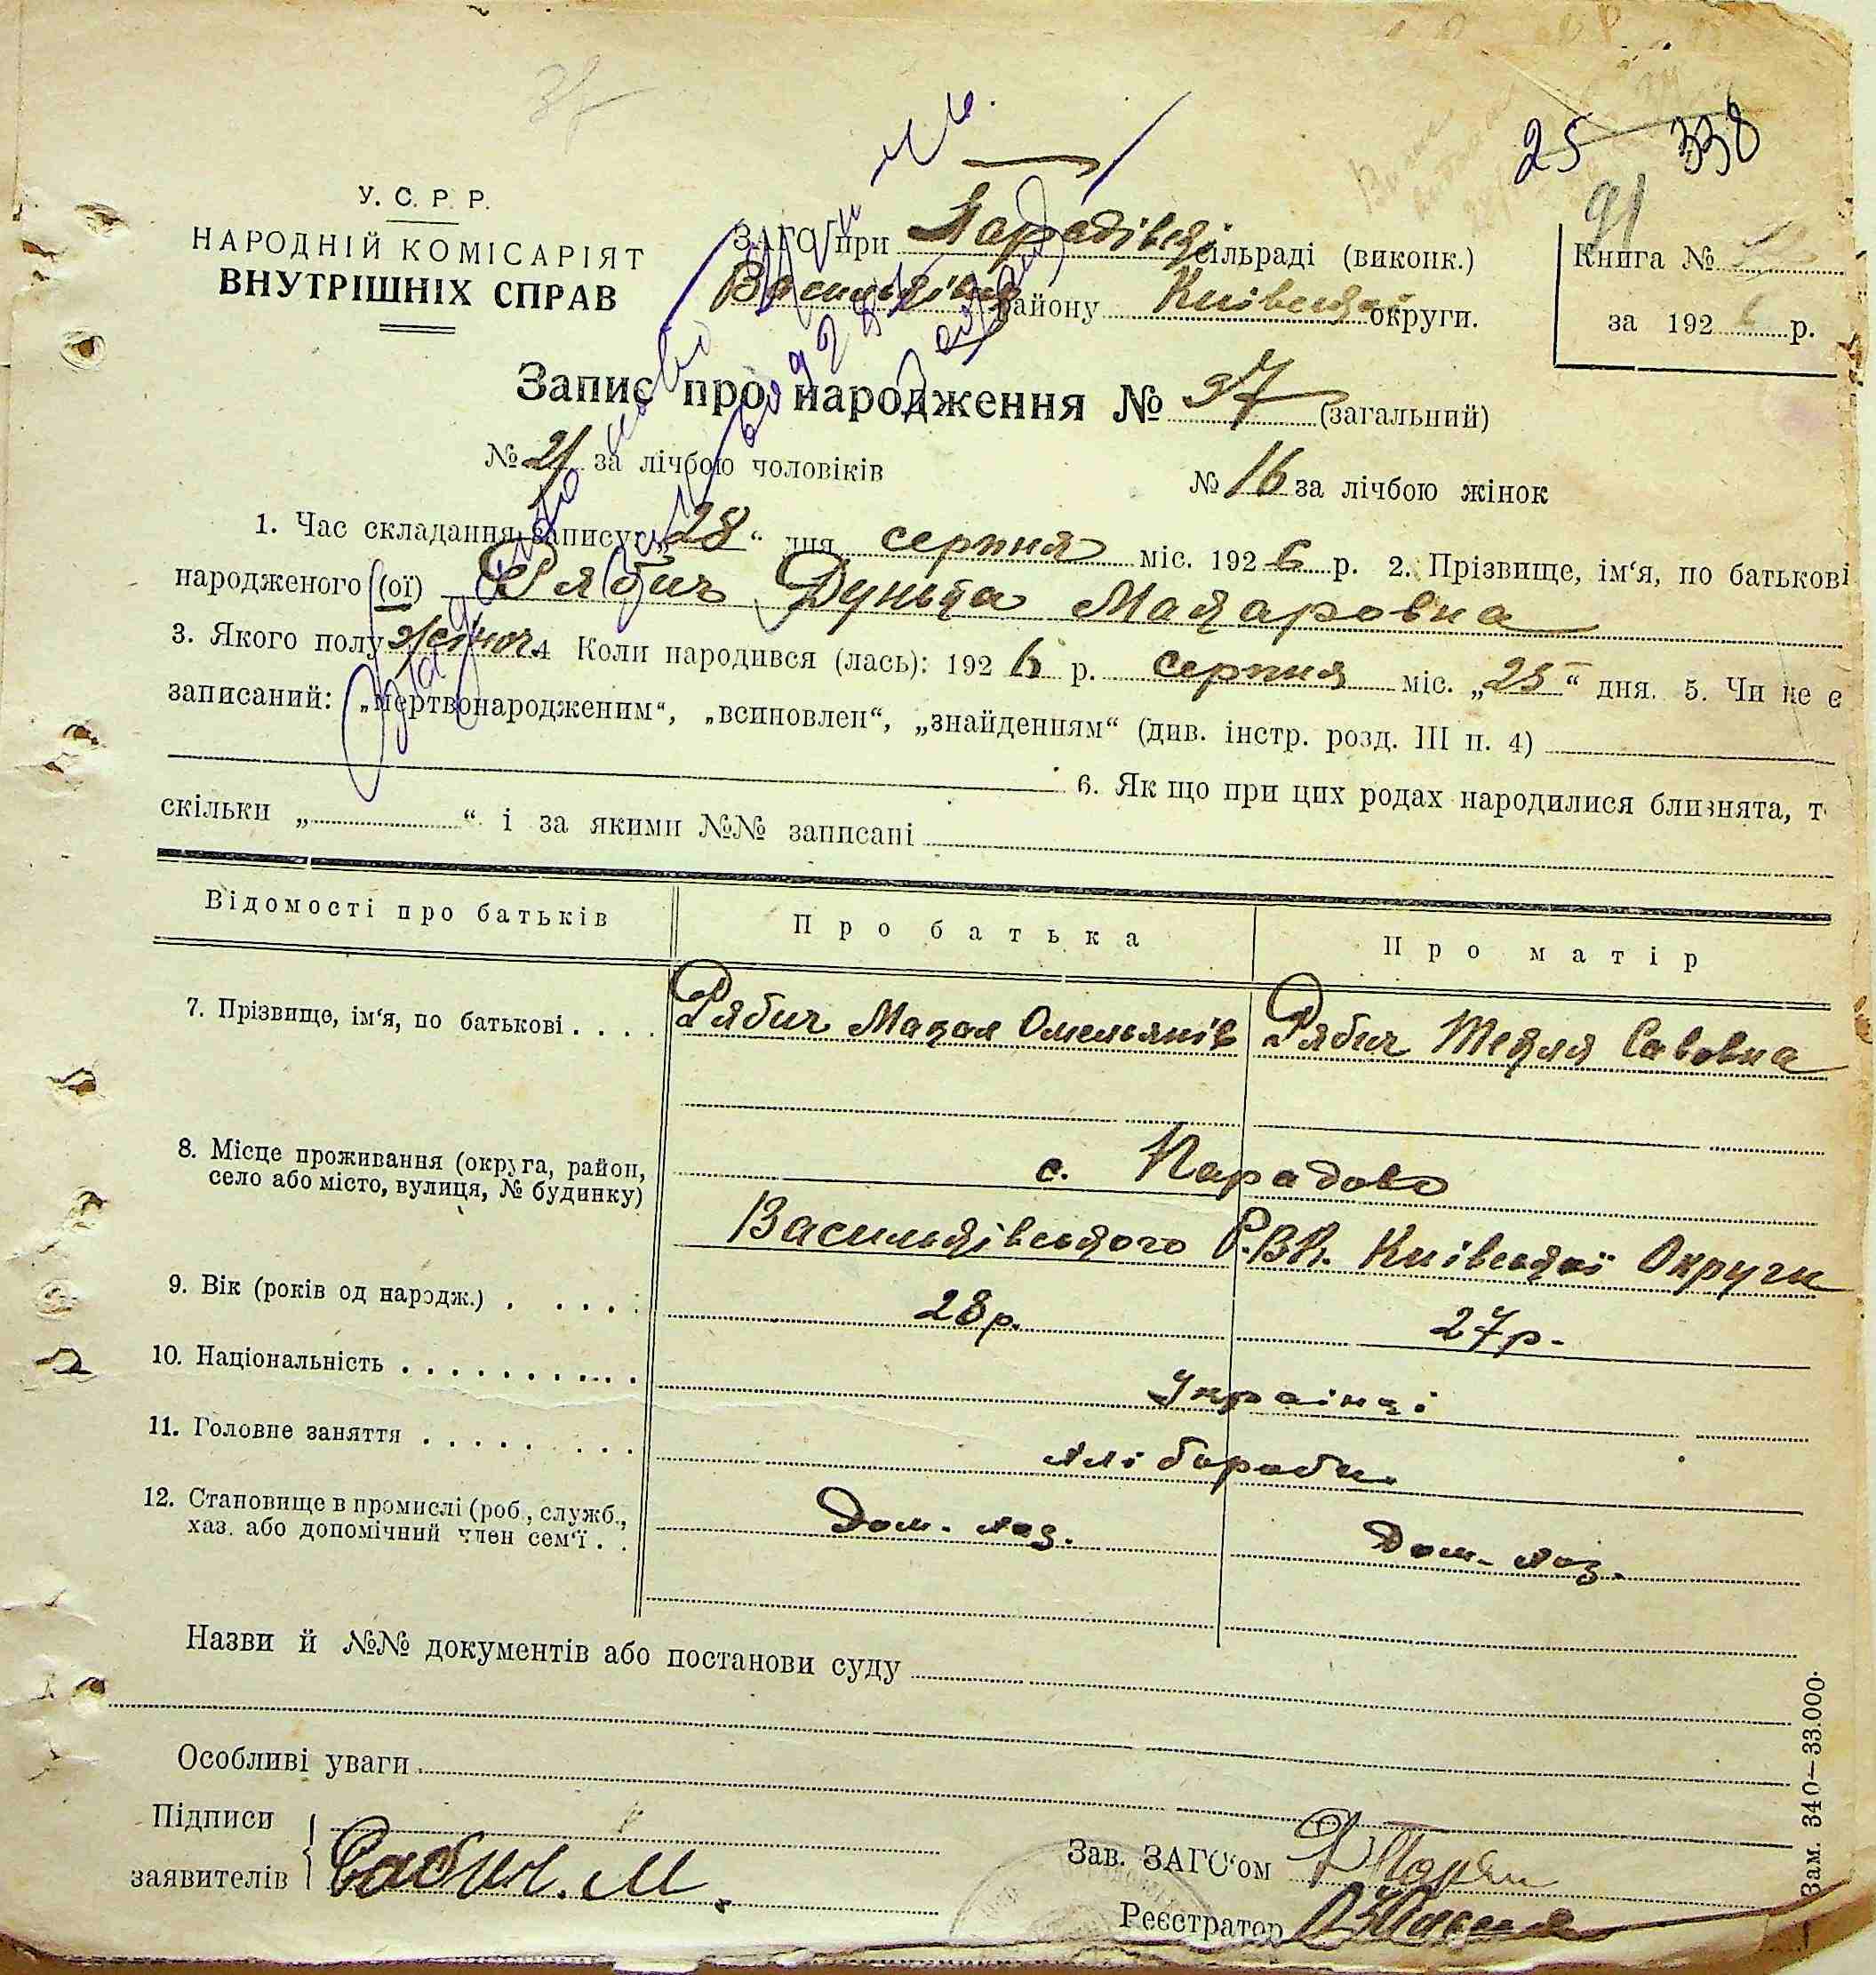 25 338
91
У. С. Р. Р.
НАРОДНІЙ КОМІСАРІЯТ
ВНУТРІШНІХ СПРАВ
ЗАГС при сільраді (виконк.)
району Київської округи.
Книга №
за 1926 р.
Запис про народження № 37 (загальний)
№ 21 за лічбою чоловіків № 16 за лічбою жінок
1. Час складання запису: „28“ дня серпня міс. 1926 р. 2. Прізвище, ім‘я, по батькові
народженого (ої) Рябич Дунька Макаровна
3. Якого полу жіноч. 4 Коли народився (лась): 1926 р. серпня міс. „25“ дня. 5. Чи не є
записаний: „мертвонародженим“, „всиновлен“, „знайденням“ (див. інстр. розд. III п. 4)
6. Як що при цих родах народилися близнята, т
скільки „ “ і за якими №№ записані
Відомості про батьків Про батька Про матір
7. Прізвище, ім‘я, по батькові . . . . Рябич Макар Омельянів Рябич Текля Савовна
8. Місце проживання (округа, район,
село або місто, вулиця, № будинку)
с.
Васильківського Р.В.К. Київської Округи
9. Вік (років од народж.) . . . . . 28 р. 27 р.
10. Національність . . . . . . . . . . . Українці
11. Головне заняття . . . . . . . . . хлібороби
12. Становище в промислі (роб., служб.,
хаз. або допомічний член сем‘ї . .
Дом. хаз. Дом. хаз.
Назви й №№ документів або постанови суду
Особливі уваги
Підписи
заявителів
Зав. ЗАГС‘ом
Реєстратор
Зам. 340—33.000.